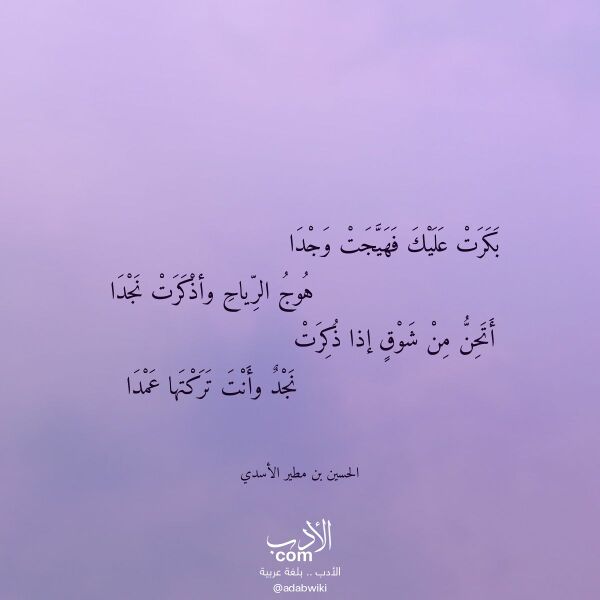 بَكَرَتْ عَلَيْكَ فَهَيَّجَتْ وَجْدَا
هُوجُ الرِّياحِ وأذْكَرَتْ نَجْدَا
أَتَحِنُّ مِنْ شَوْقٍ إذا ذُكِرَتْ
نَجْدٌ وأَنْتَ تَرَكْتَها عَمْدَا
الحسين بن مطير الأسدي
الأدب
.com
الأدب .. بلغة عربية
@adabwiki